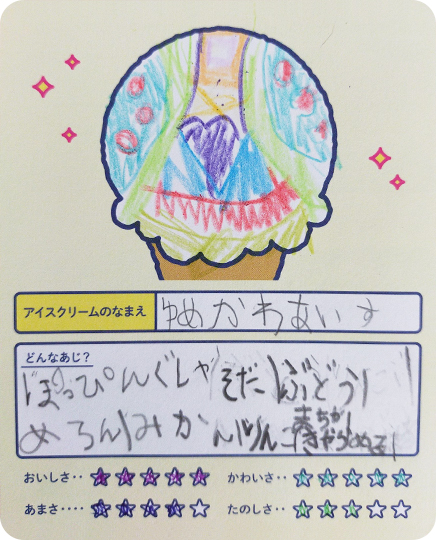 アイスクリームのなまえ ゆめかわあいす
どんなあじ?
ぽっぴんぐしゃ そだ ぶどう
めろん みかん りんご きゃらめる
おいしさ‥ かわいさ‥
あまさ‥‥ たのしさ‥